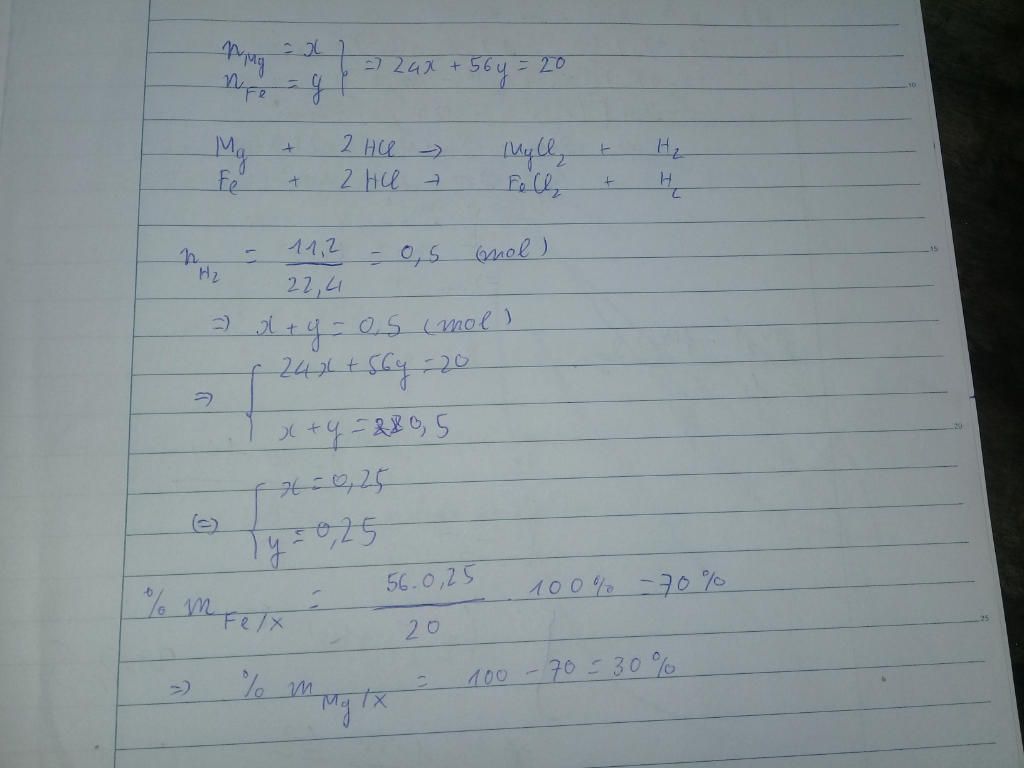 n_Mg = x } => 24x + 56y = 20
n_Fe = y
Mg + 2HCl → MgCl₂ + H₂
Fe + 2HCl → FeCl₂ + H₂
n_H₂ = 11,2 / 22,4 = 0,5 (mol)
=> x + y = 0,5 (mol)
=> { 24x + 56y = 20
x + y = 0,5
(=) { x = 0,25
y = 0,25
% m_Fe/X = 56.0,25 / 20 . 100% = 70%
=> % m_Mg/X = 100 - 70 = 30%
10
15
20
25